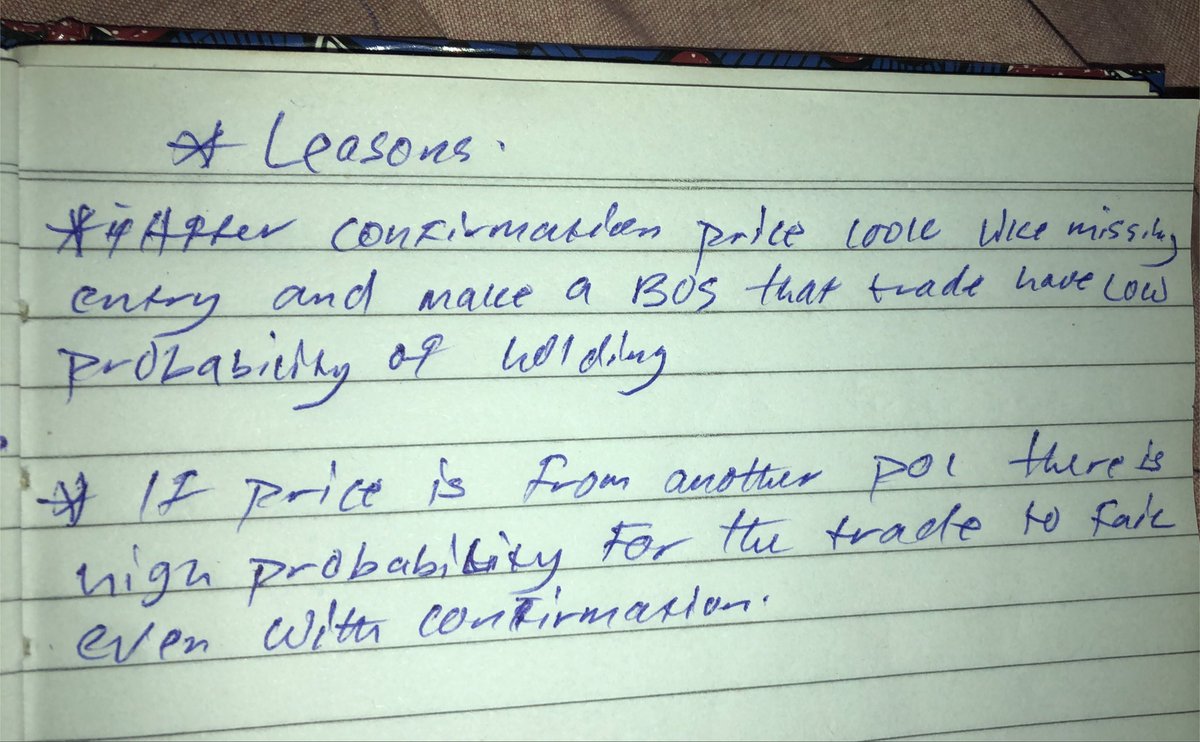 * Leasons.
* if After confirmation price look like missing
entry and make a BOS that trade have low
probability of holding
* If price is from another POI there is
high probability for the trade to fail
even with confirmation.